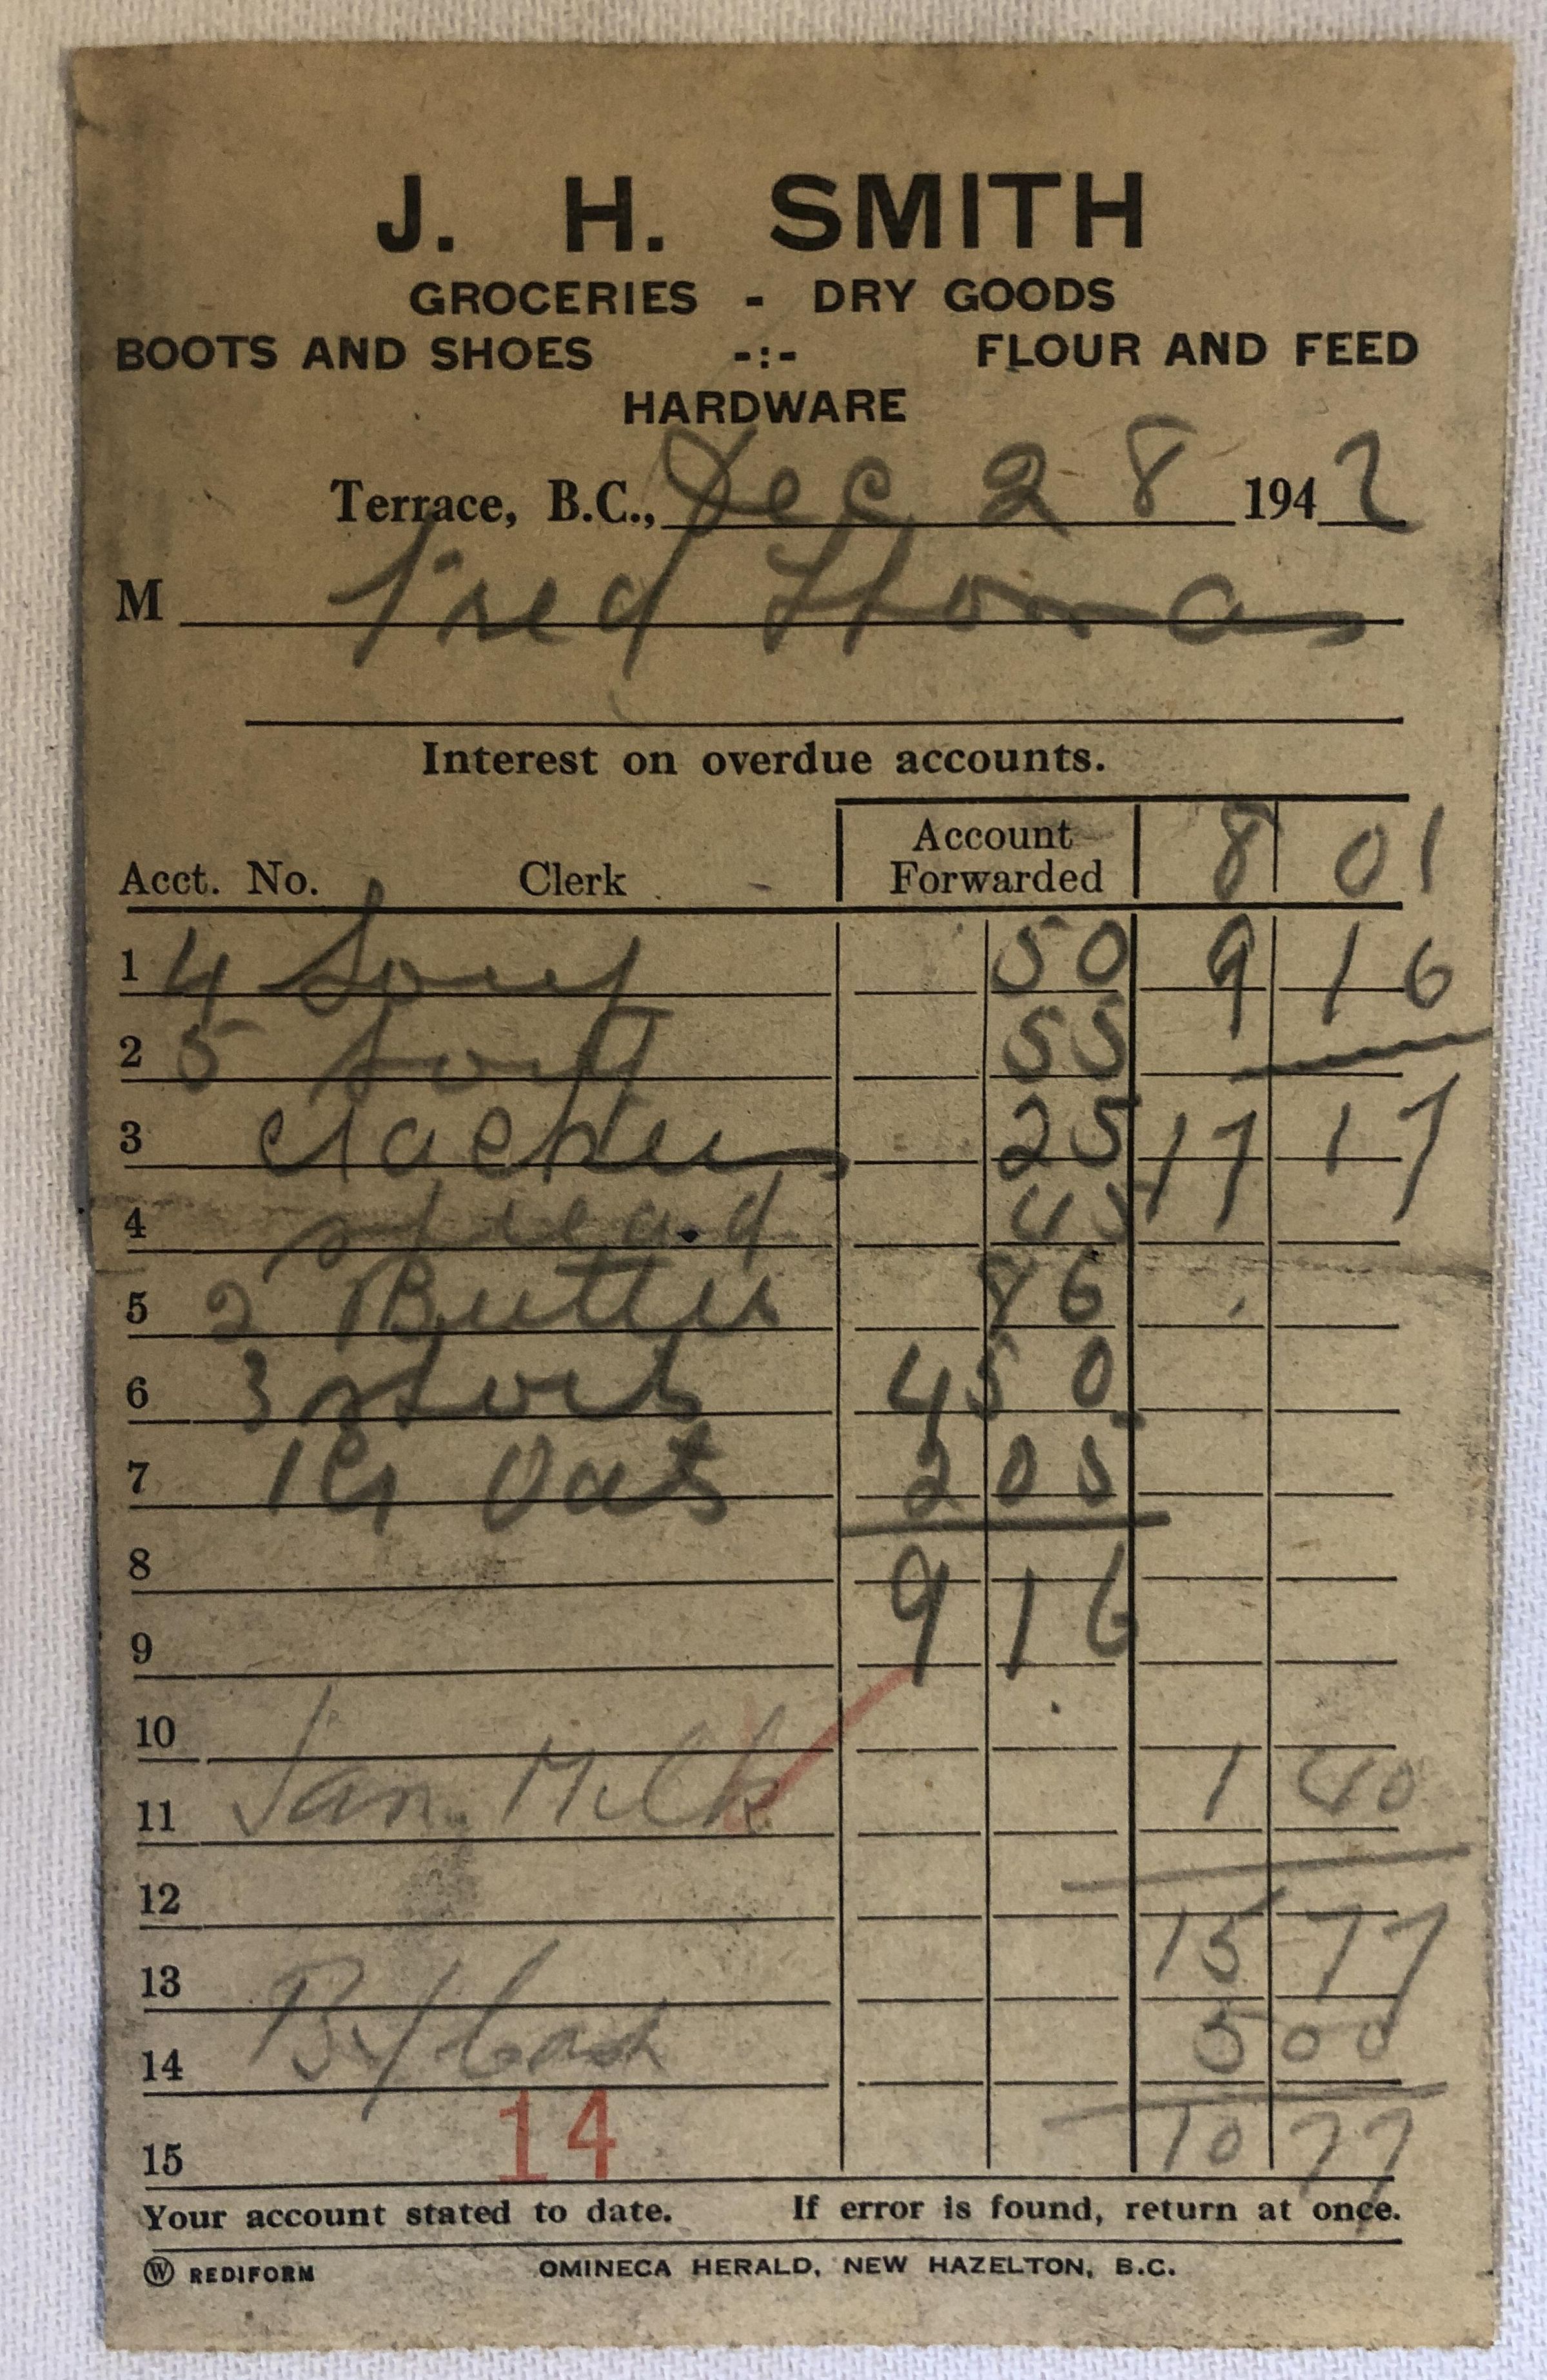 J. H. SMITH
GROCERIES - DRY GOODS
BOOTS AND SHOES -:- FLOUR AND FEED
HARDWARE
Terrace, B.C., Dec 28 1942
M Fred Thomas
Interest on overdue accounts.
Acct. No. Clerk Account Forwarded 8 01
1 4 Soup 50 9 16
2 5 Soup 55
3 25 17 17
4 spread 45
5 2 Butter 86
6 3 shorts 4 50
7 1 Oats 2 05
8
9 9 16
10
11 Jan. Milk 1 40
12
13 15 77
14 By Cash 5 00
15 14 10 77
Your account stated to date. If error is found, return at once.
W REDIFORM OMINECA HERALD, NEW HAZELTON, B.C.